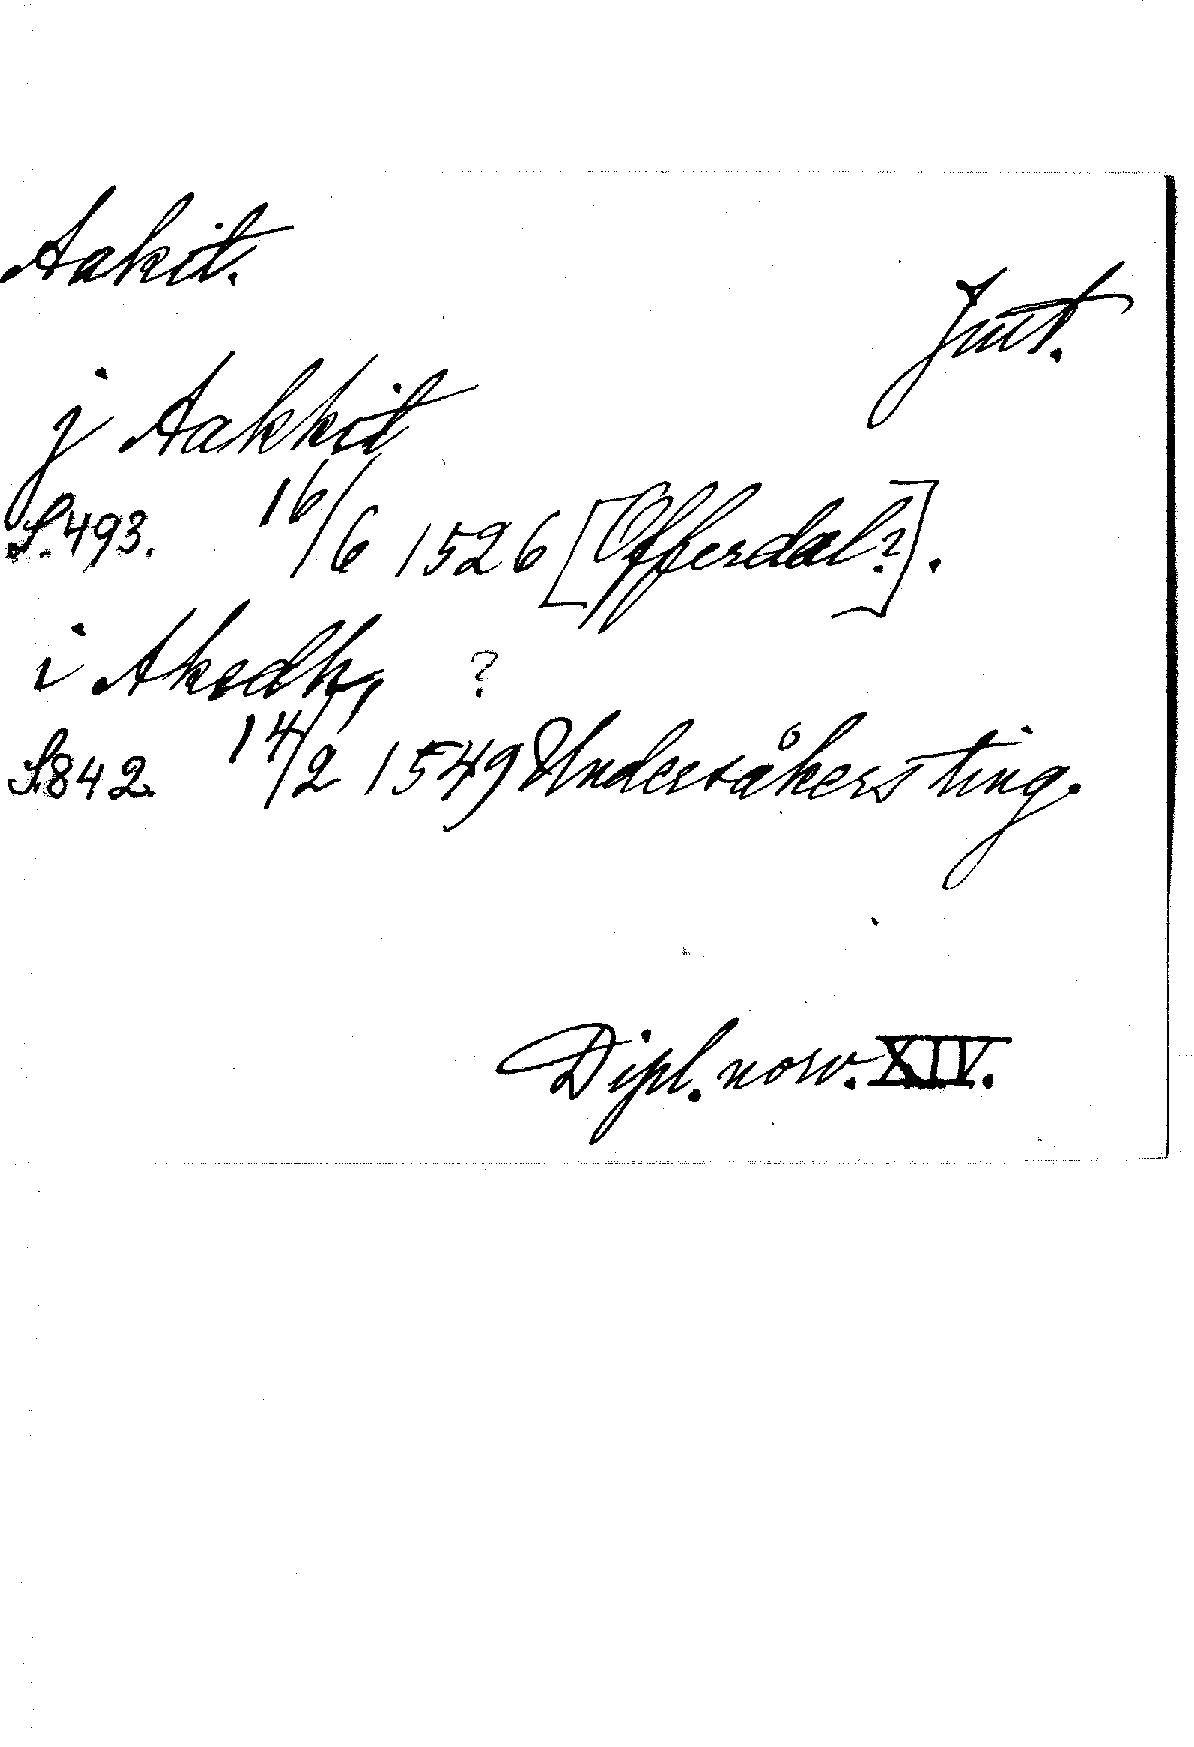 Aakit.
Jmt.
j Aakkit
S. 493. 16/6 1526 [Offerdal?].
i Akedh, ?
S. 842. 14/2 1549 Undersåkers ting.
Dipl. norv. XIV.